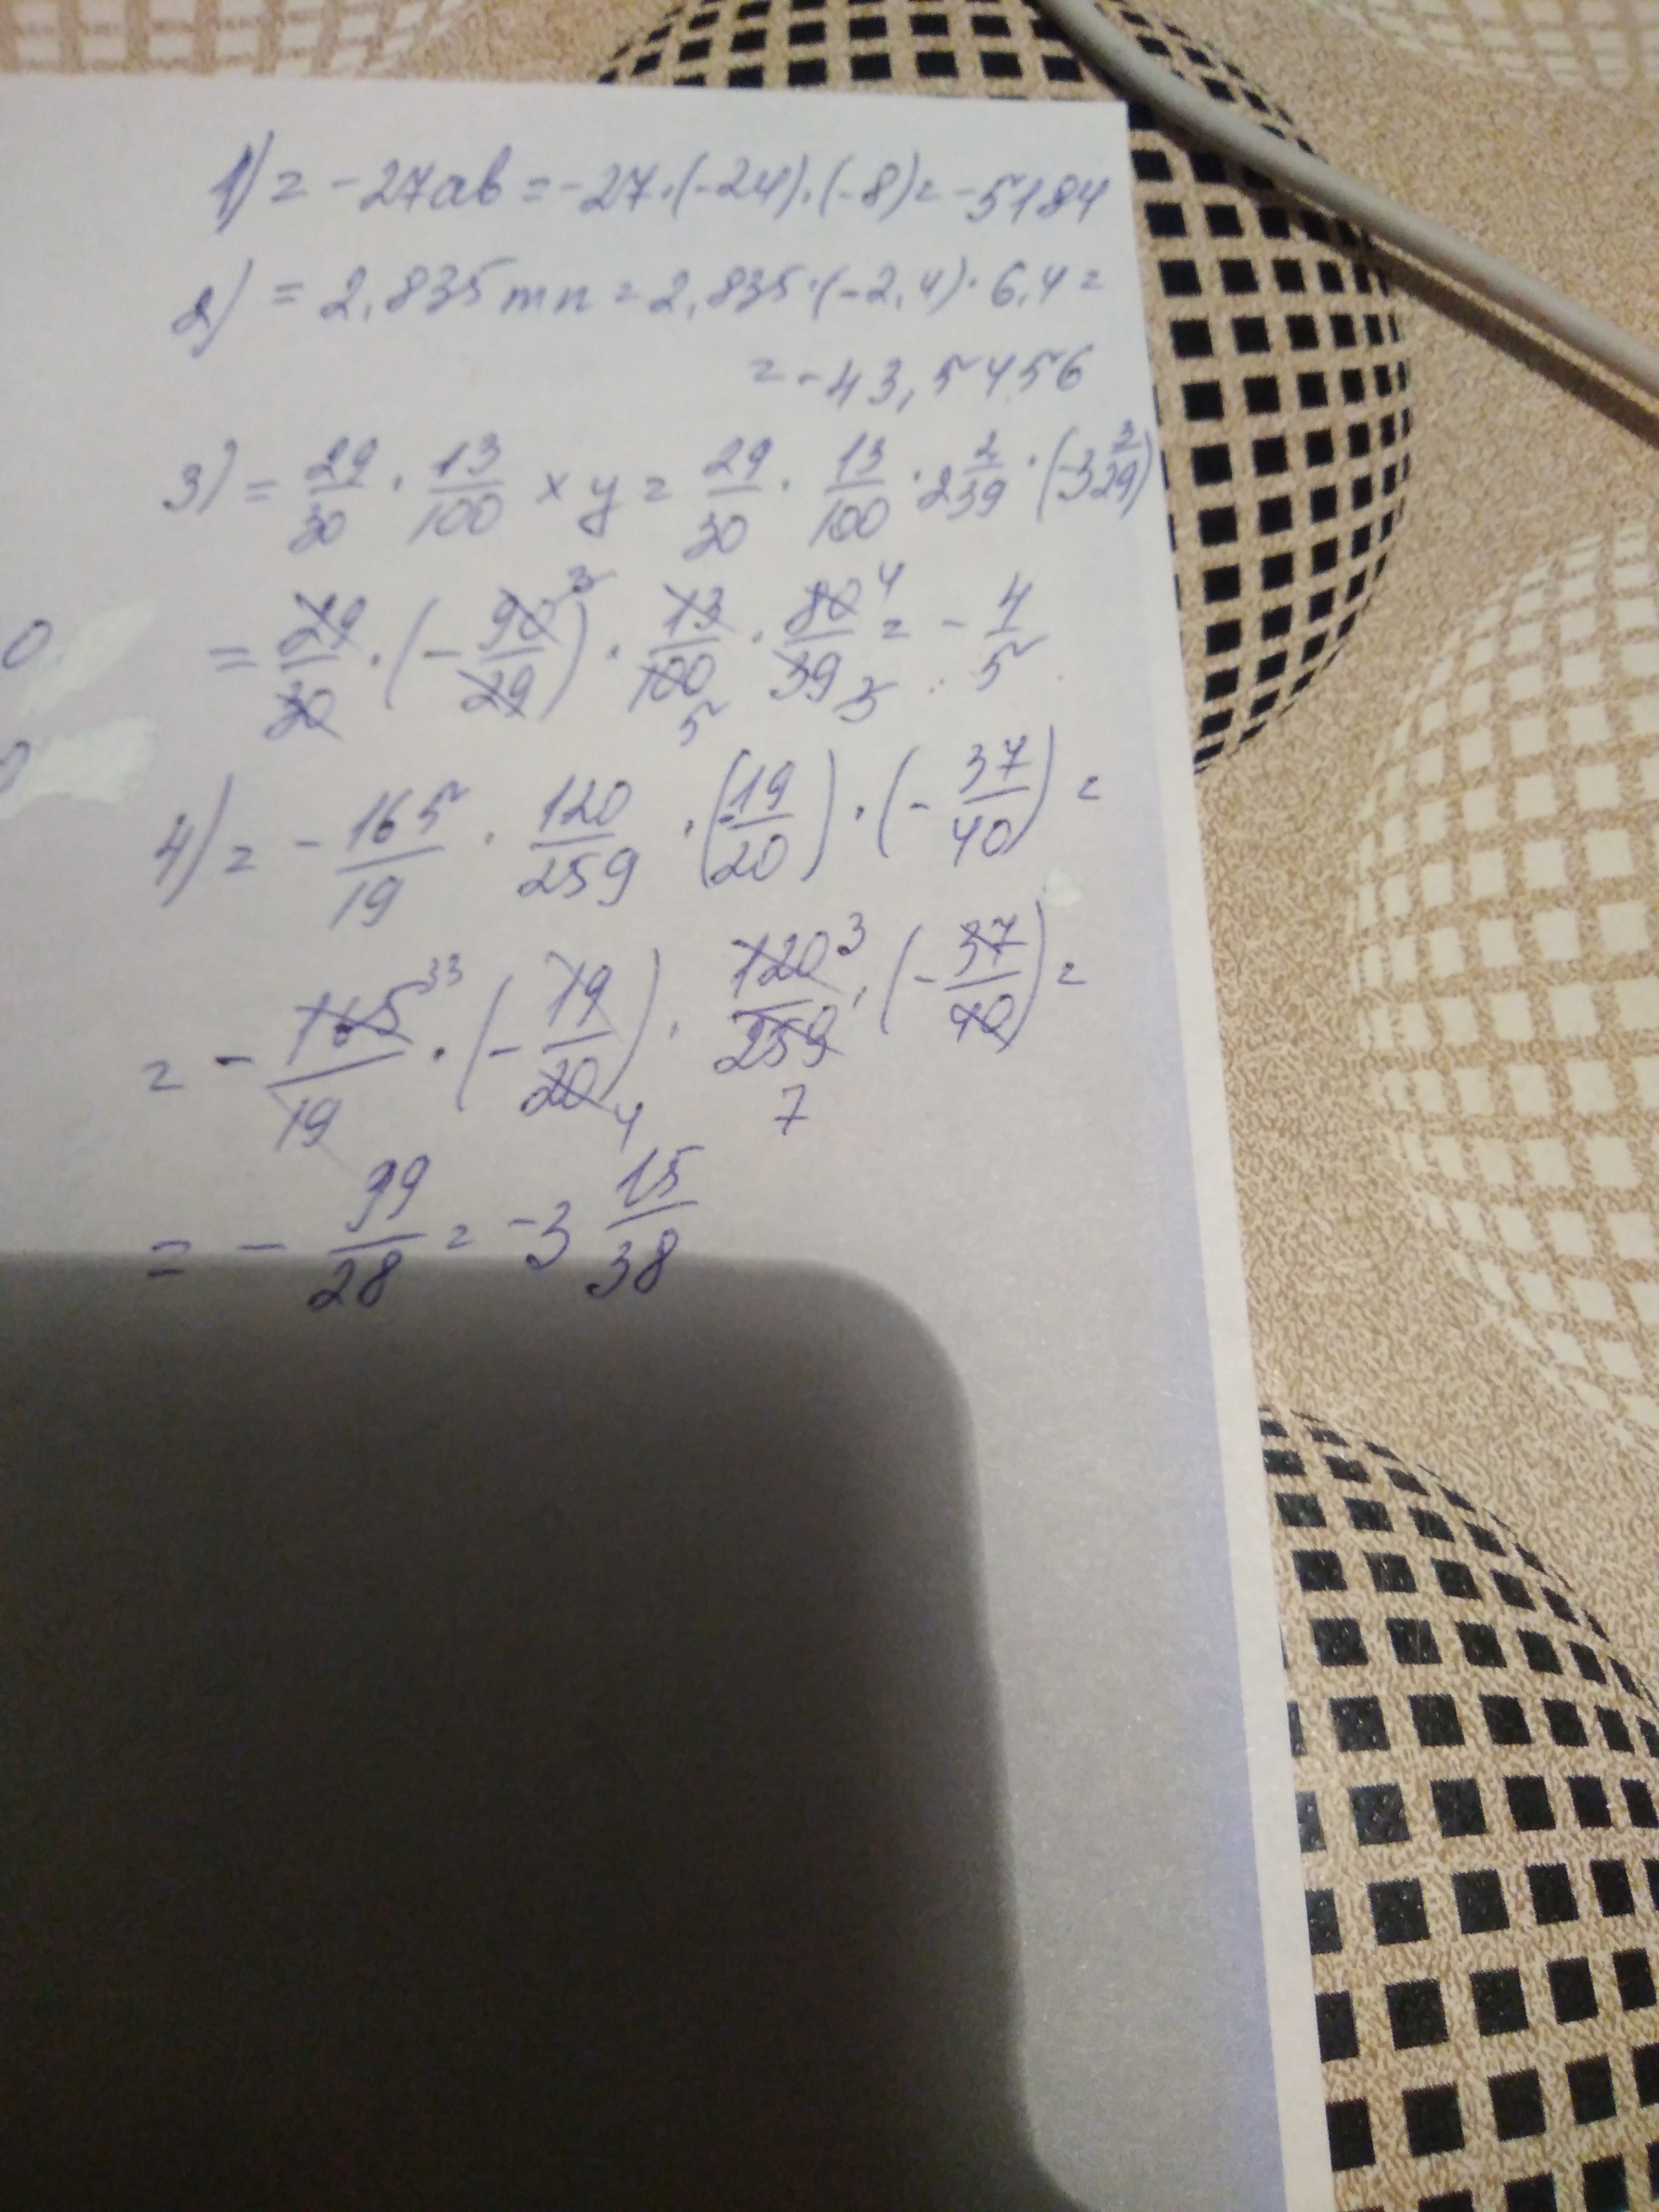 1) = -27ab = -27·(-24)·(-8) = -5184
2) = 2,835mn = 2,835·(-2,4)·6,4 =
= -43,5456
3) = 29/30 · 13/100 xy = 29/30 · 13/100 · 2 2/39 · (-3 3/29)
= 29/30 · (- 90/29) 3 · 13/100 5 · 80/39 4 3 = - 4/5
0
4) = - 165/19 · 120/259 · (-19/20) · (- 37/40) =
= - 165/19 33 · (- 19/20) 4 · 120/259 3 7 · (- 37/40) =
= - 99/28 = -3 15/38